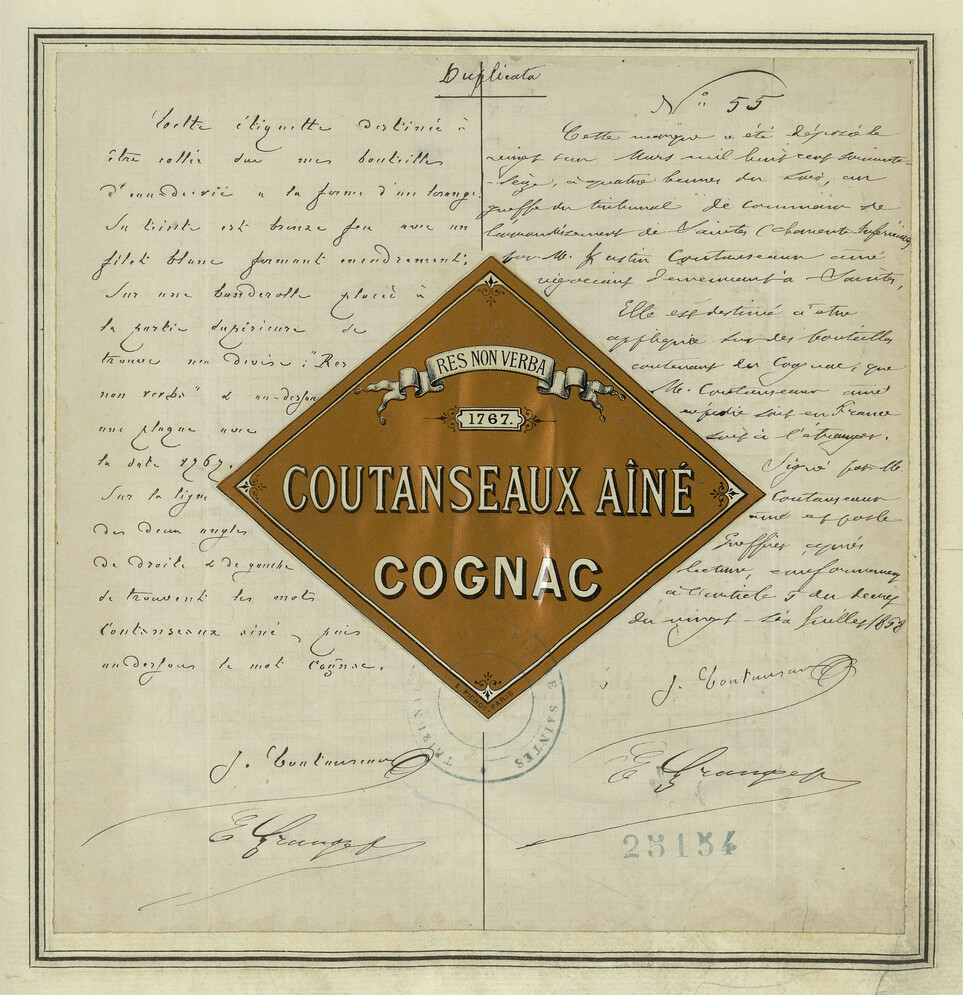 Duplicata
Cette étiquette destinée à
être collée sur mes bouteilles
d'eau de vie a la forme d'un losange.
Sa teinte est bronze feu avec un
filet blanc formant encadrement.
Sur une banderolle placée à
la partie supérieure se
trouve ma devise: "Res
non verba" & au-dessous
une plaque avec
la date 1767.
Sur la ligne
des deux angles
de droite & de gauche
se trouvent les mots
Coutanseaux aîné, puis
au dessous le mot Cognac.
J. Coutanseaux
E Granger
RES NON VERBA
1767.
COUTANSEAUX AÎNÉ
COGNAC
PARIS
DE SAINTES
No 55
Cette marque a été déposée le
vingt un Mars mil huit cent soixante-
-seize, à quatre heures du soir, au
greffe du tribunal de commerce de
l'arrondissement de Saintes (Charente Inférieure)
par M. Justin Coutanseaux aîné
négociant demeurant à Saintes,
Elle est destinée à être
appliquée sur des bouteilles
contenant du Cognac, que
M. Coutanseaux aîné
expédie soit en France
soit à l'étranger.
Signé par M.
Coutanseaux
aîné et par le
Greffier, après
lecture, conformément
à l'article 5 du décret
du vingt-six juillet 1858
J. Coutanseaux
E Granger
25154